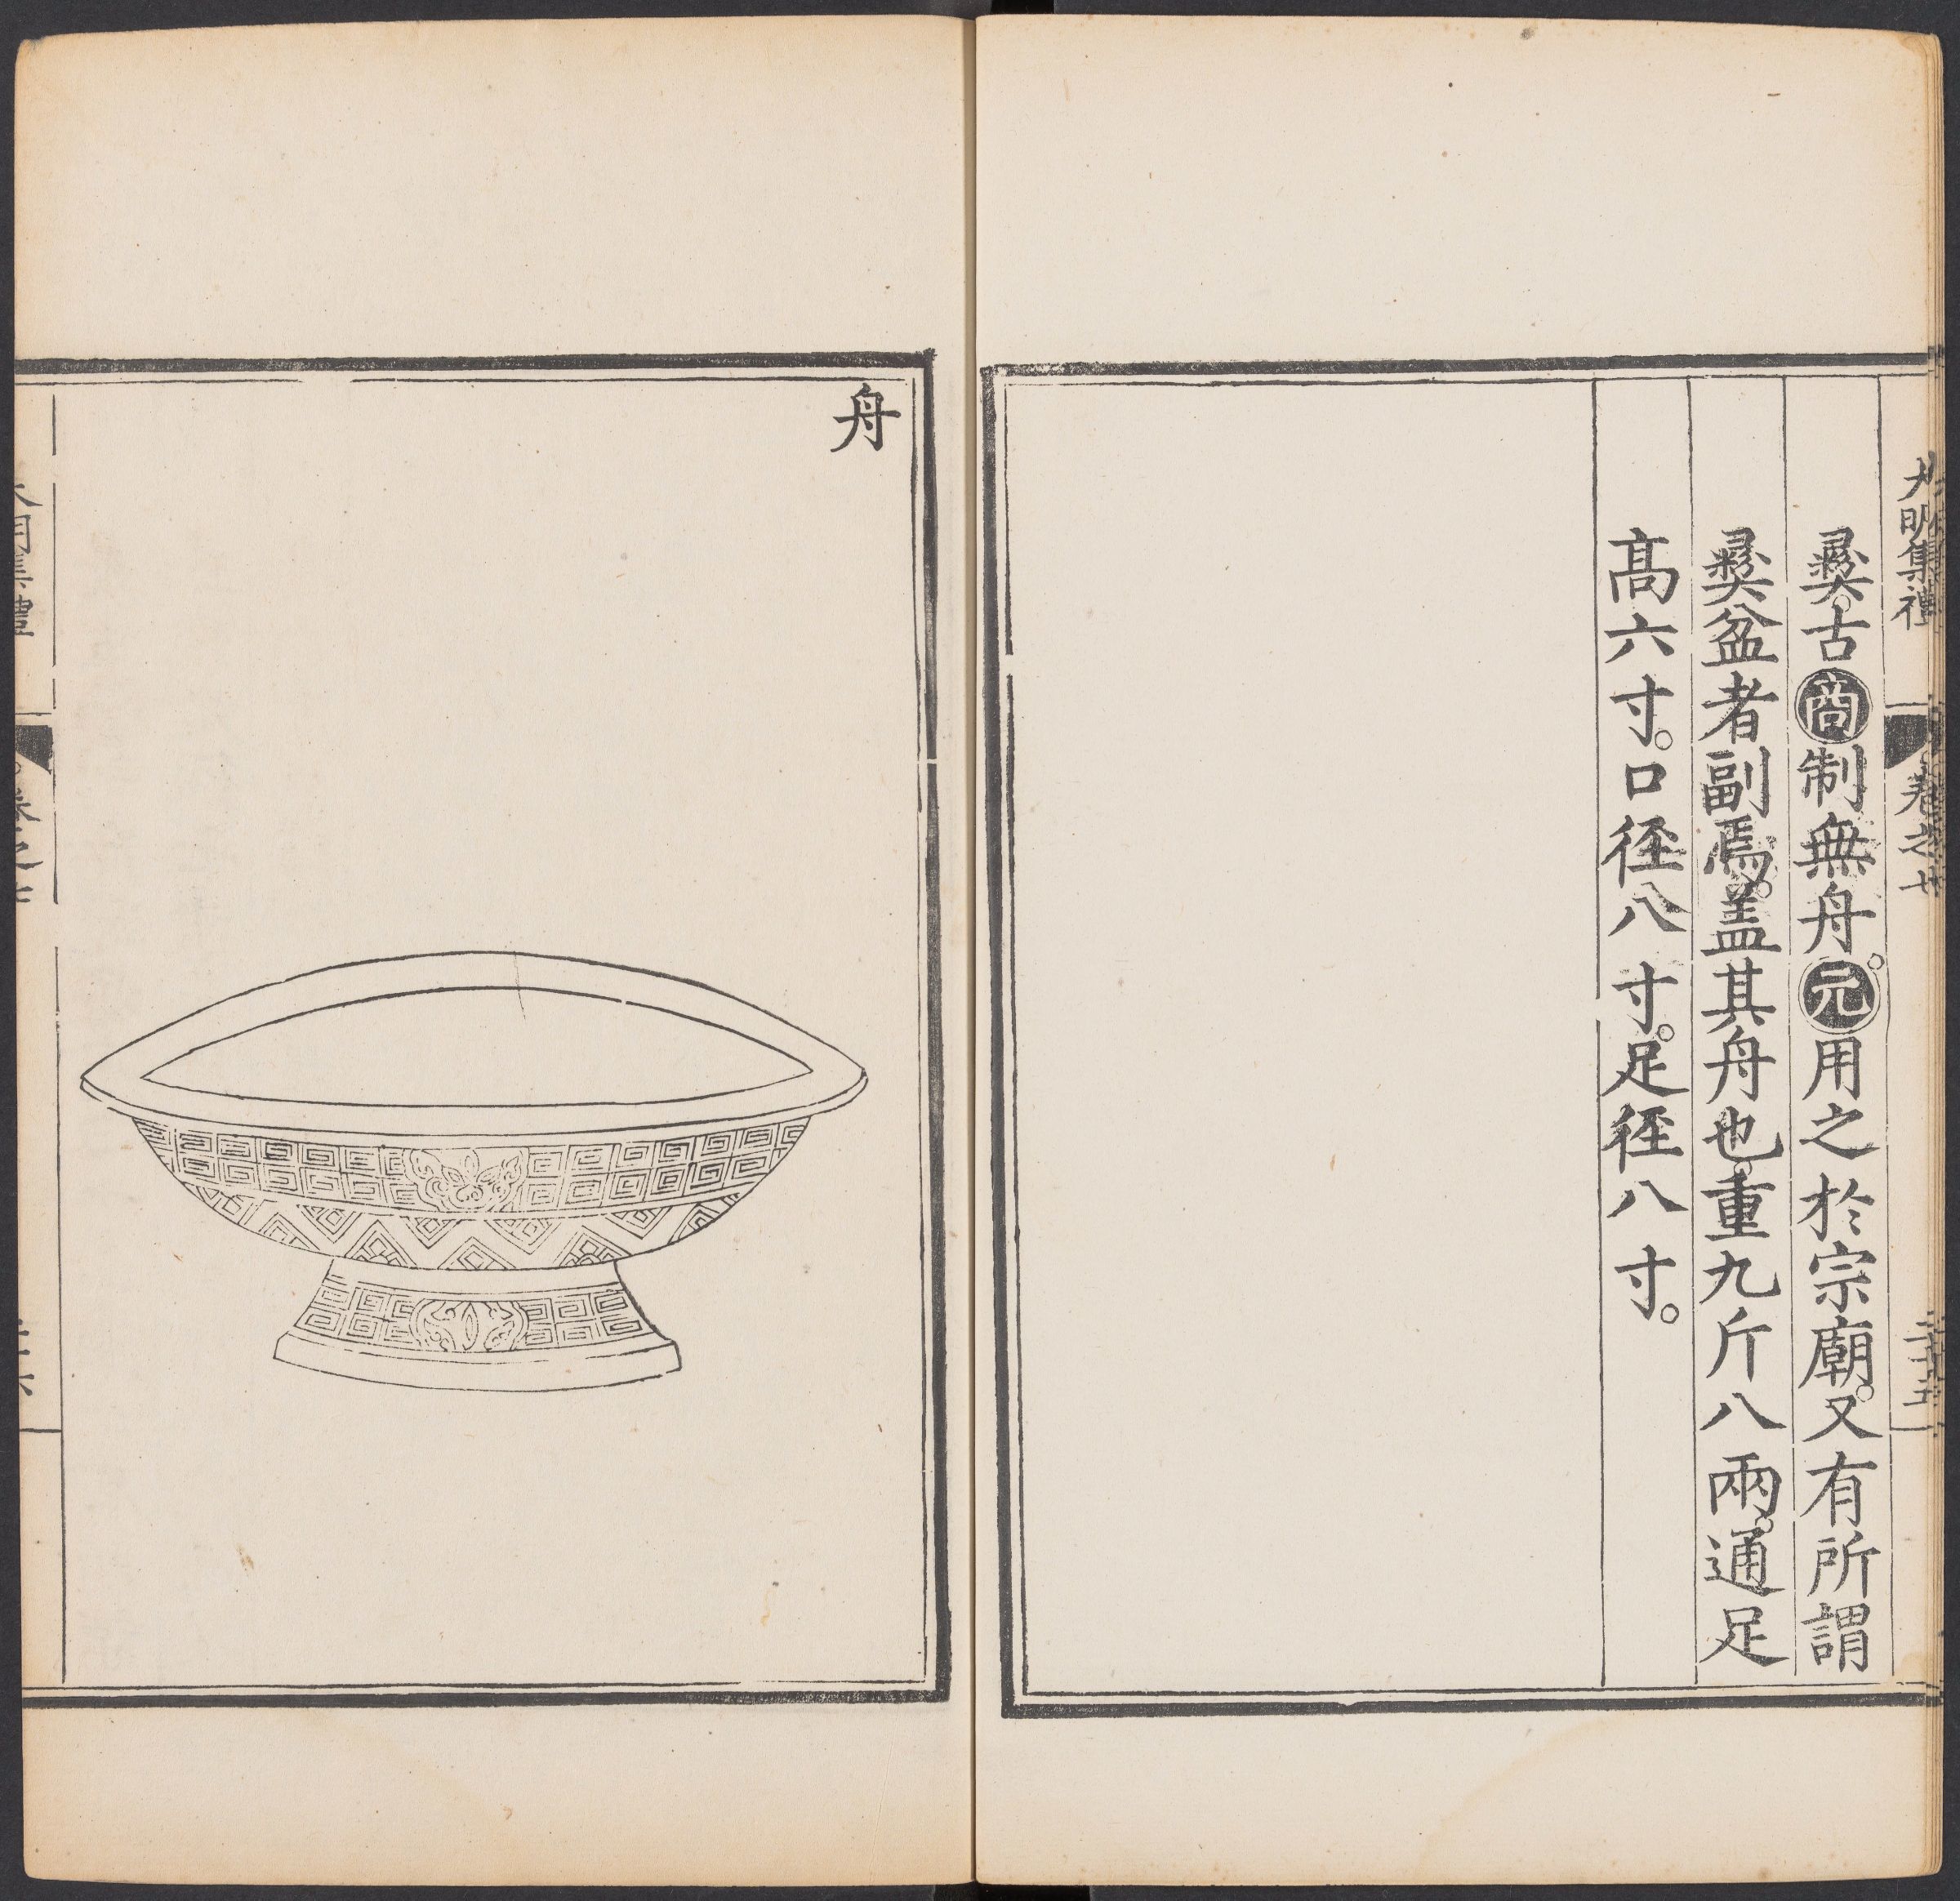 大明集禮 卷之廿
彜。古商制無舟。元用之於宗廟。又有所謂
彜盆者副焉。盖其舟也。重九斤八兩。通足
髙六寸。口徑八寸。足徑八寸。
舟